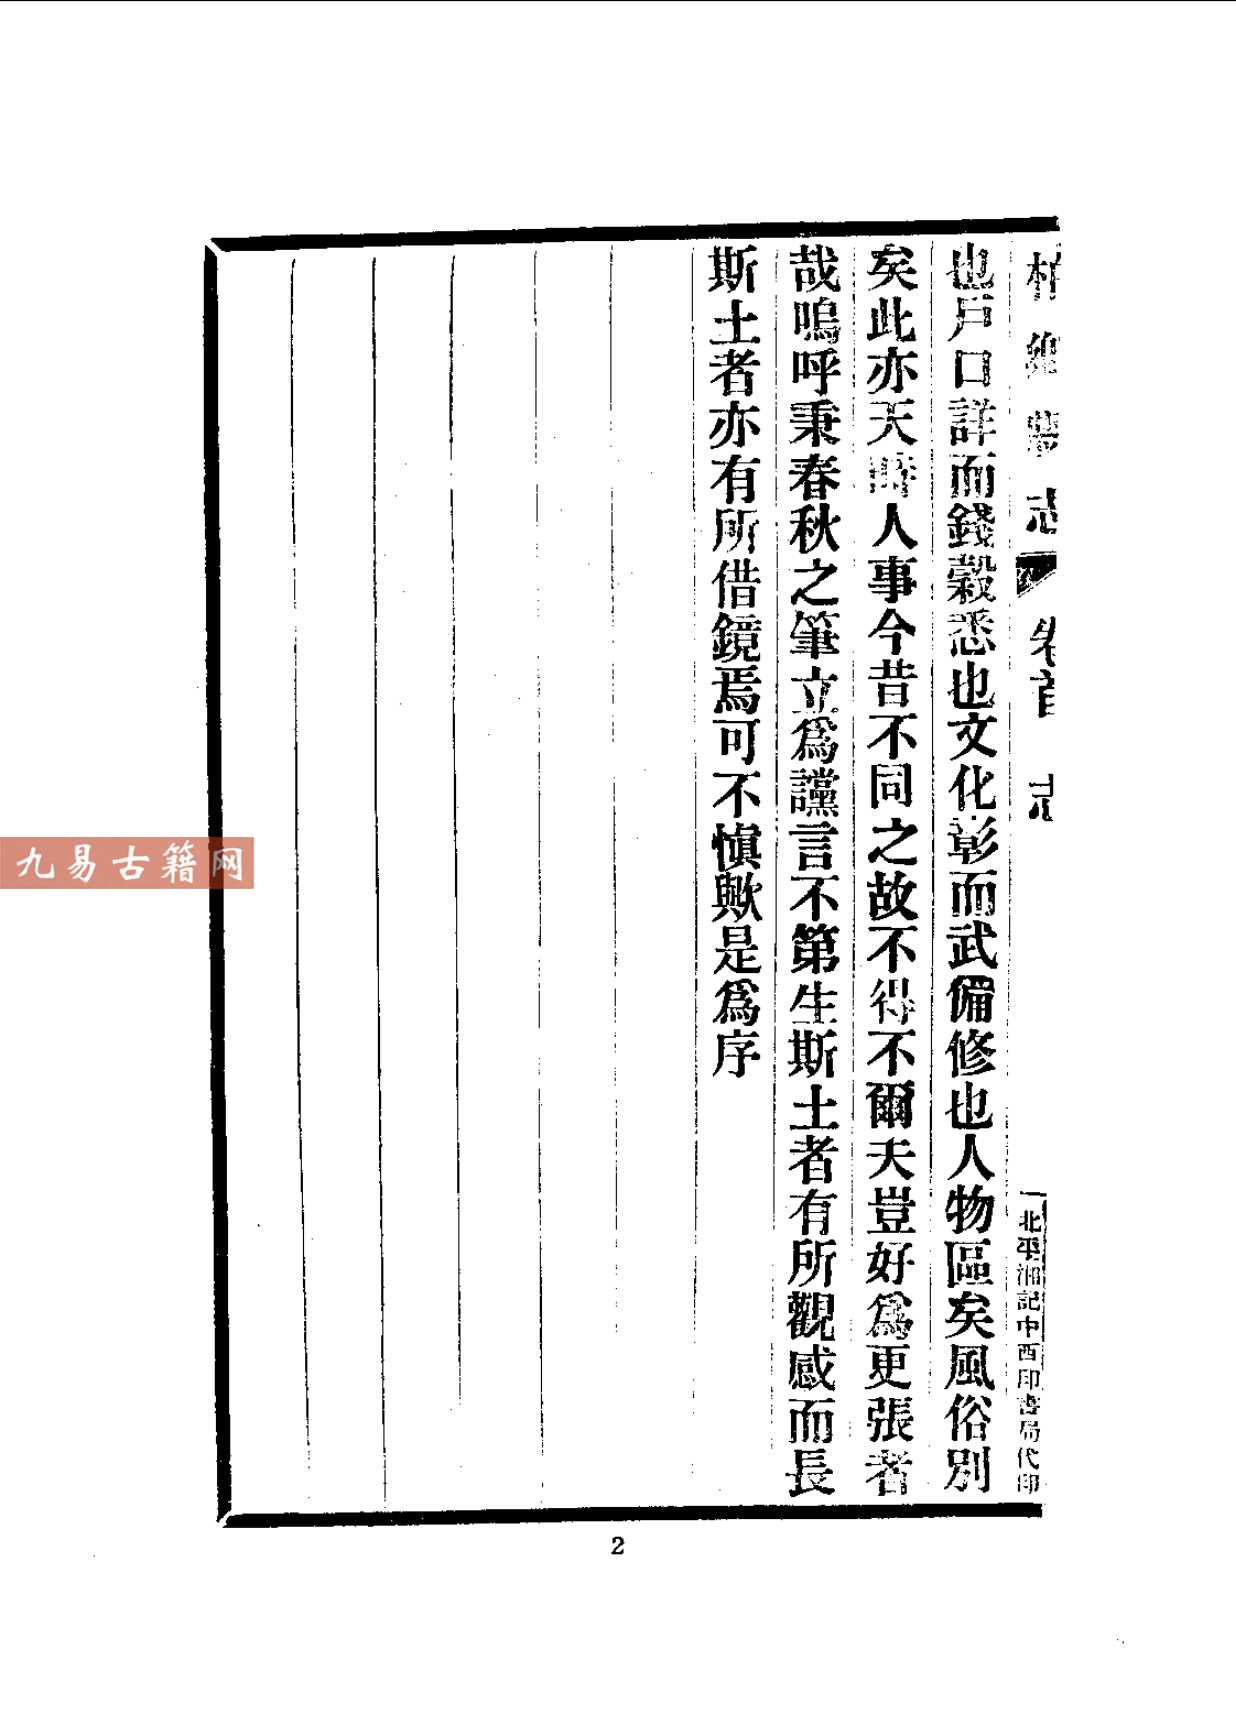 柏鄉縣志 卷首 志
一 北平湘記中西印書局代印
也戶口詳而錢穀悉也文化彰而武備修也人物區矣風俗別
矣此亦天時人事今昔不同之故不得不爾夫豈好爲更張者
哉嗚呼秉春秋之筆立爲讜言不第生斯土者有所觀感而長
斯土者亦有所借鏡焉可不愼歟是爲序
九易古籍网
2